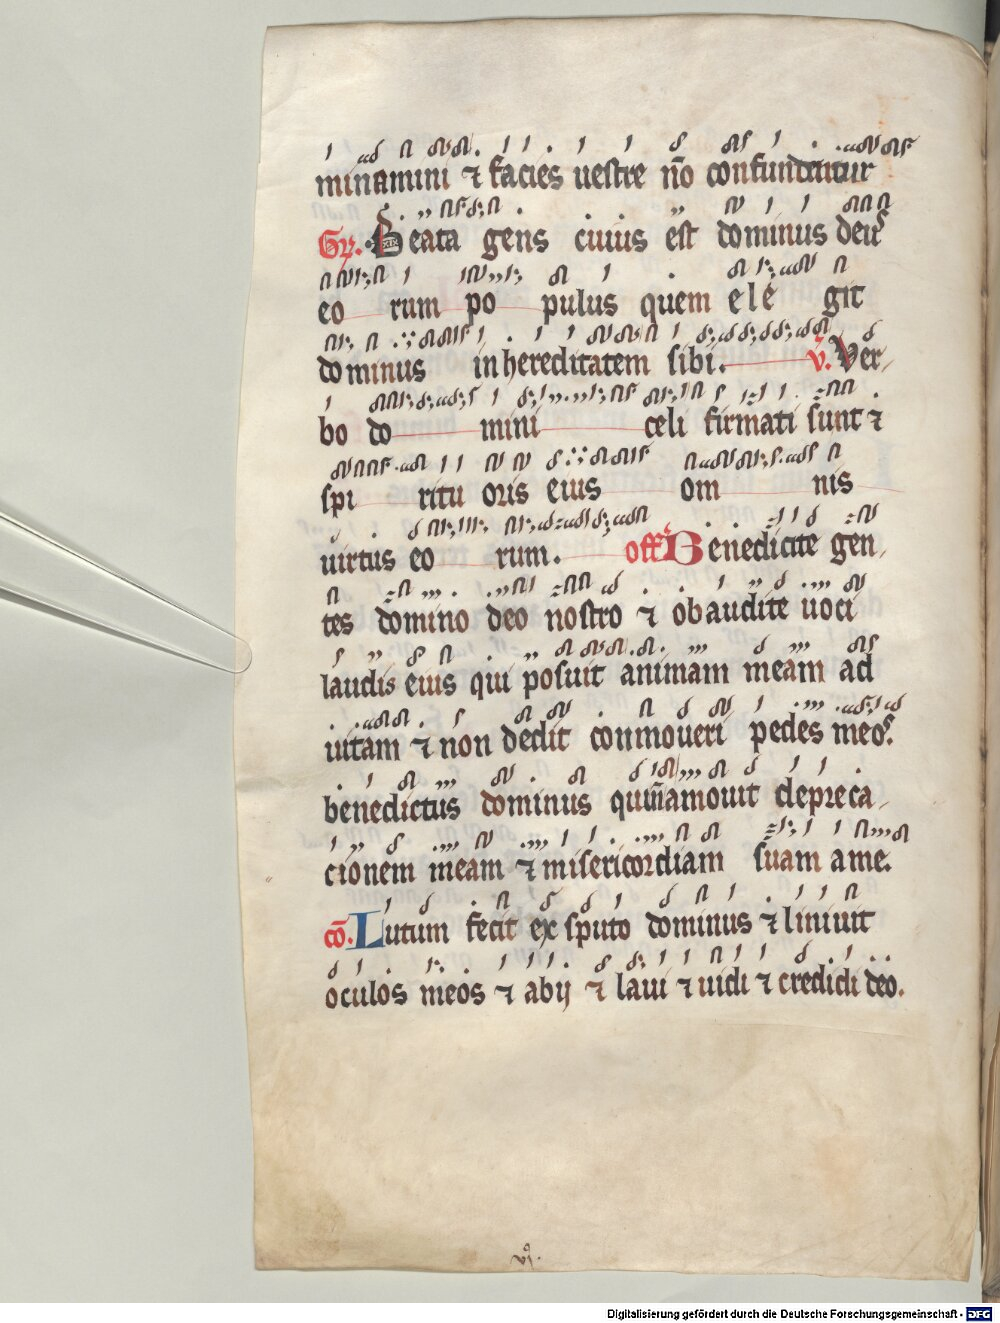 minamini ⁊ facies uestre nō confundentur
Gr. Beata gens cuius est dominus deus
eo rum po pulus quem ele git
dominus in hereditatem sibi. v̄. Ver
bo do mini celi firmati sunt ⁊
spi ritu oris eius om nis
uirtus eo rum. off Benedicite gen
tes domino deo nostro ⁊ obaudite uoci
laudis eius qui posuit animam meam ad
uitam ⁊ non dedit conmoueri pedes meos.
benedictus dominus qui nō amouit depreca
cionem meam ⁊ misericordiam suam a me.
cō. Lutum fecit ex sputo dominus ⁊ liniuit
oculos meos ⁊ abij ⁊ laui ⁊ uidi ⁊ credidi deo.
vi⁹.
Digitalisierung gefördert durch die Deutsche Forschungsgemeinschaft - DFG